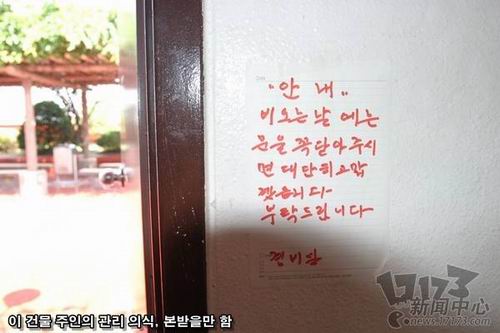 "안 내"
비오는 날 에는
문을 꼭닫아 주시
면 대단히 고맙
겠읍니다-
부탁드립니다-
이 건물 주인의 관리 의식, 본받을만 함
17173
新闻中心
news.17173.com